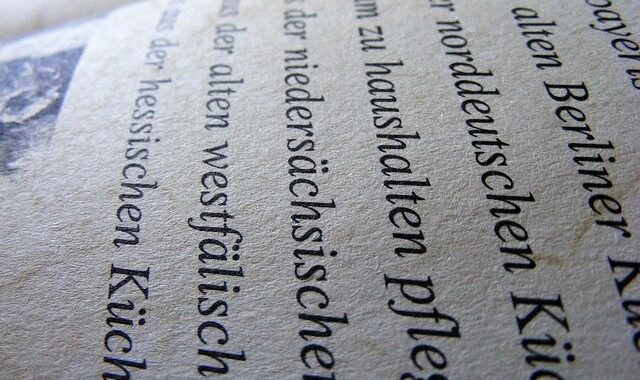 bayeris
alten Berliner Kü
er norddeutschen Küc
um zu haushalten pfleg
s der niedersächsischen
us der alten westfälisch
aus der hessischen Küch